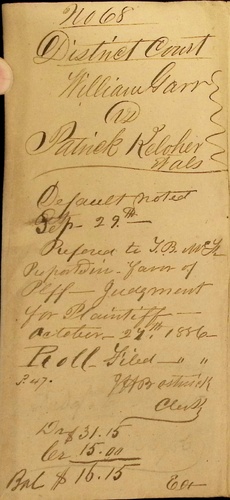 No 68
District Court
William Garr
vs
Patrick Kelcher
et als
Default noted
Sep- 29th
Refered to T.B.
Report in favor of
Plff - Judgment
for Plaintiff -
October 29th
Roll Filed - " "
P. 47.
Clerk
Dr $31.15
Cr 15.00
Bal $ 16.15